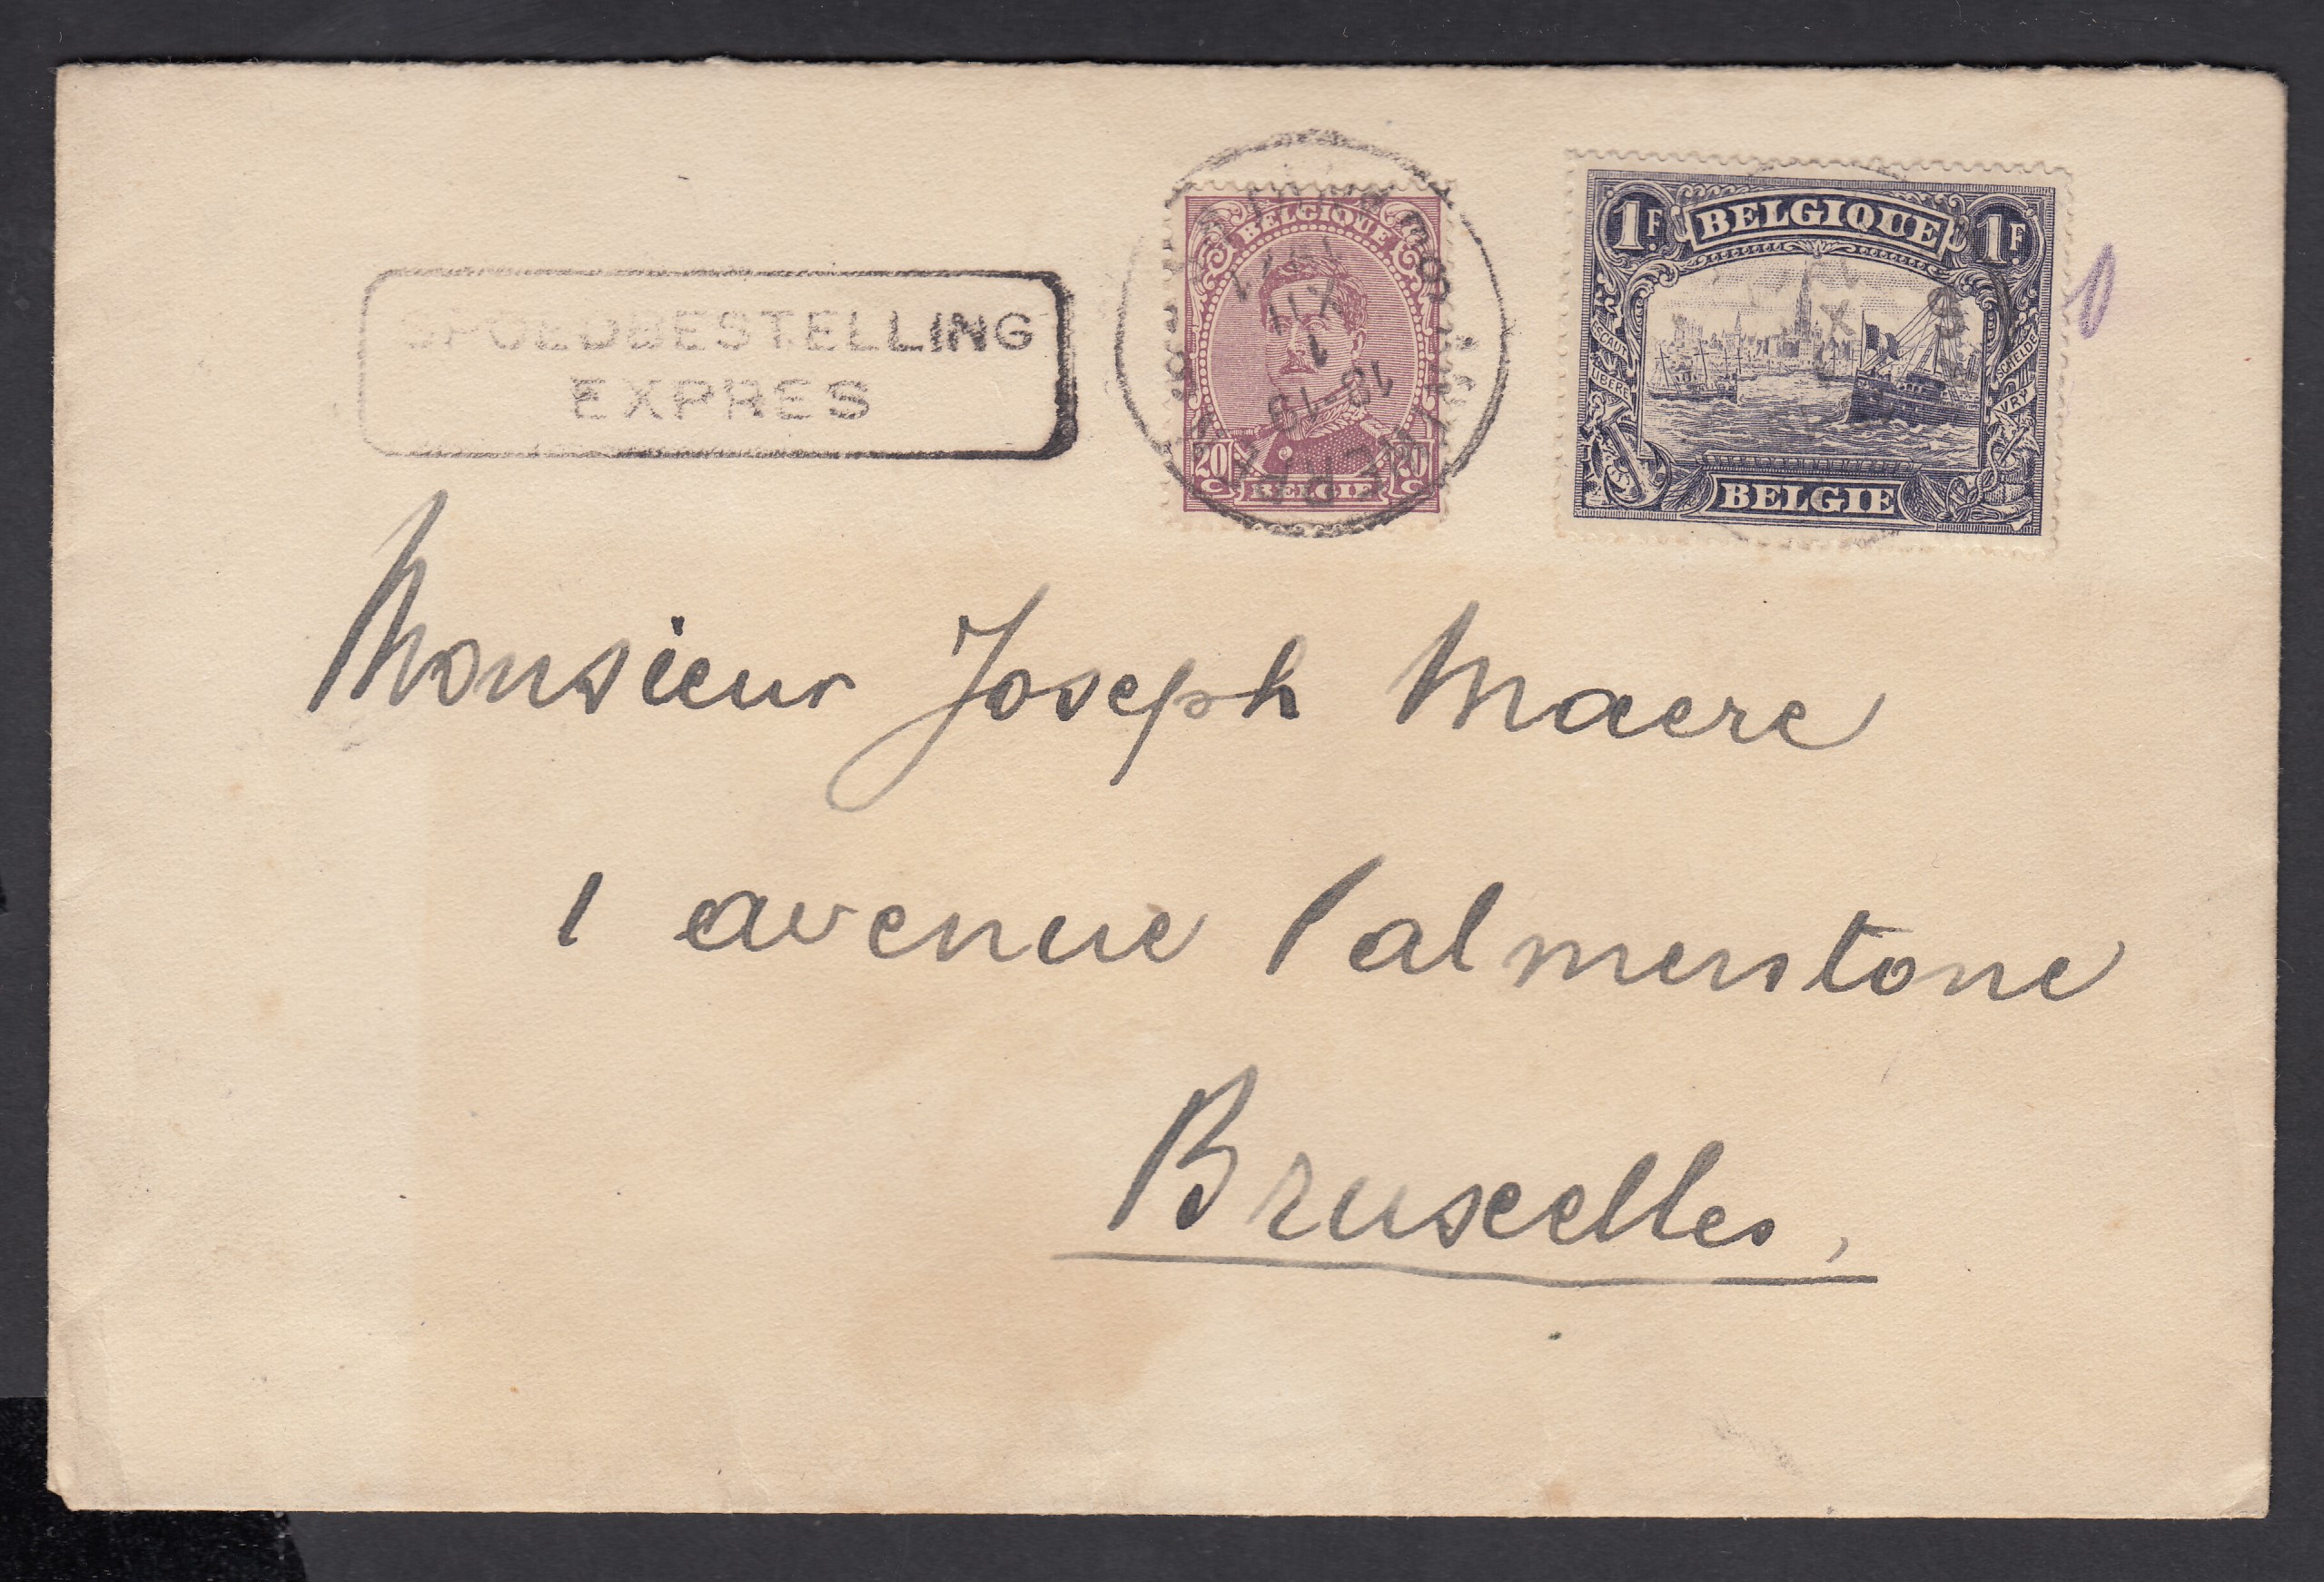 SPOEDBESTELLING
EXPRES
BELGIQUE
20 C
20 C
BELGIE
18-19
1
XII
1921
1F
BELGIQUE
1F
ESCAUT LIBERE
SCHELDE VRY
BELGIE
Monsieur Joseph Maere
1 avenue Palmerstone
Bruxelles,